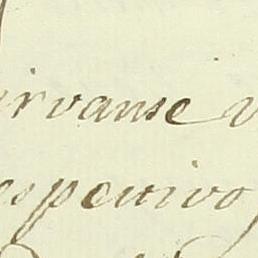 irvanse v
espectivo